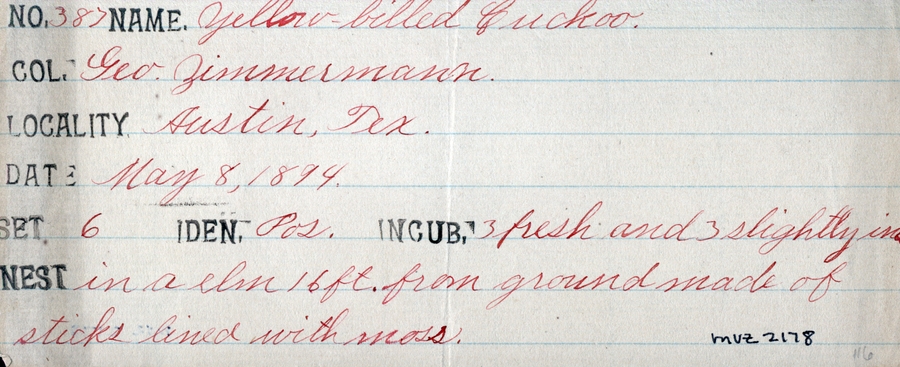 NO. 387 NAME. Yellow-billed Cuckoo.
COL. Geo. Zimmermann.
LOCALITY Austin, Tex.
DATE May 8, 1894.
SET. 6 IDEN. Pos. INCUB. 3 fresh and 3 slightly in
NEST in a elm 16 ft. from ground made of
sticks lined with moss.
mvz 2178
116